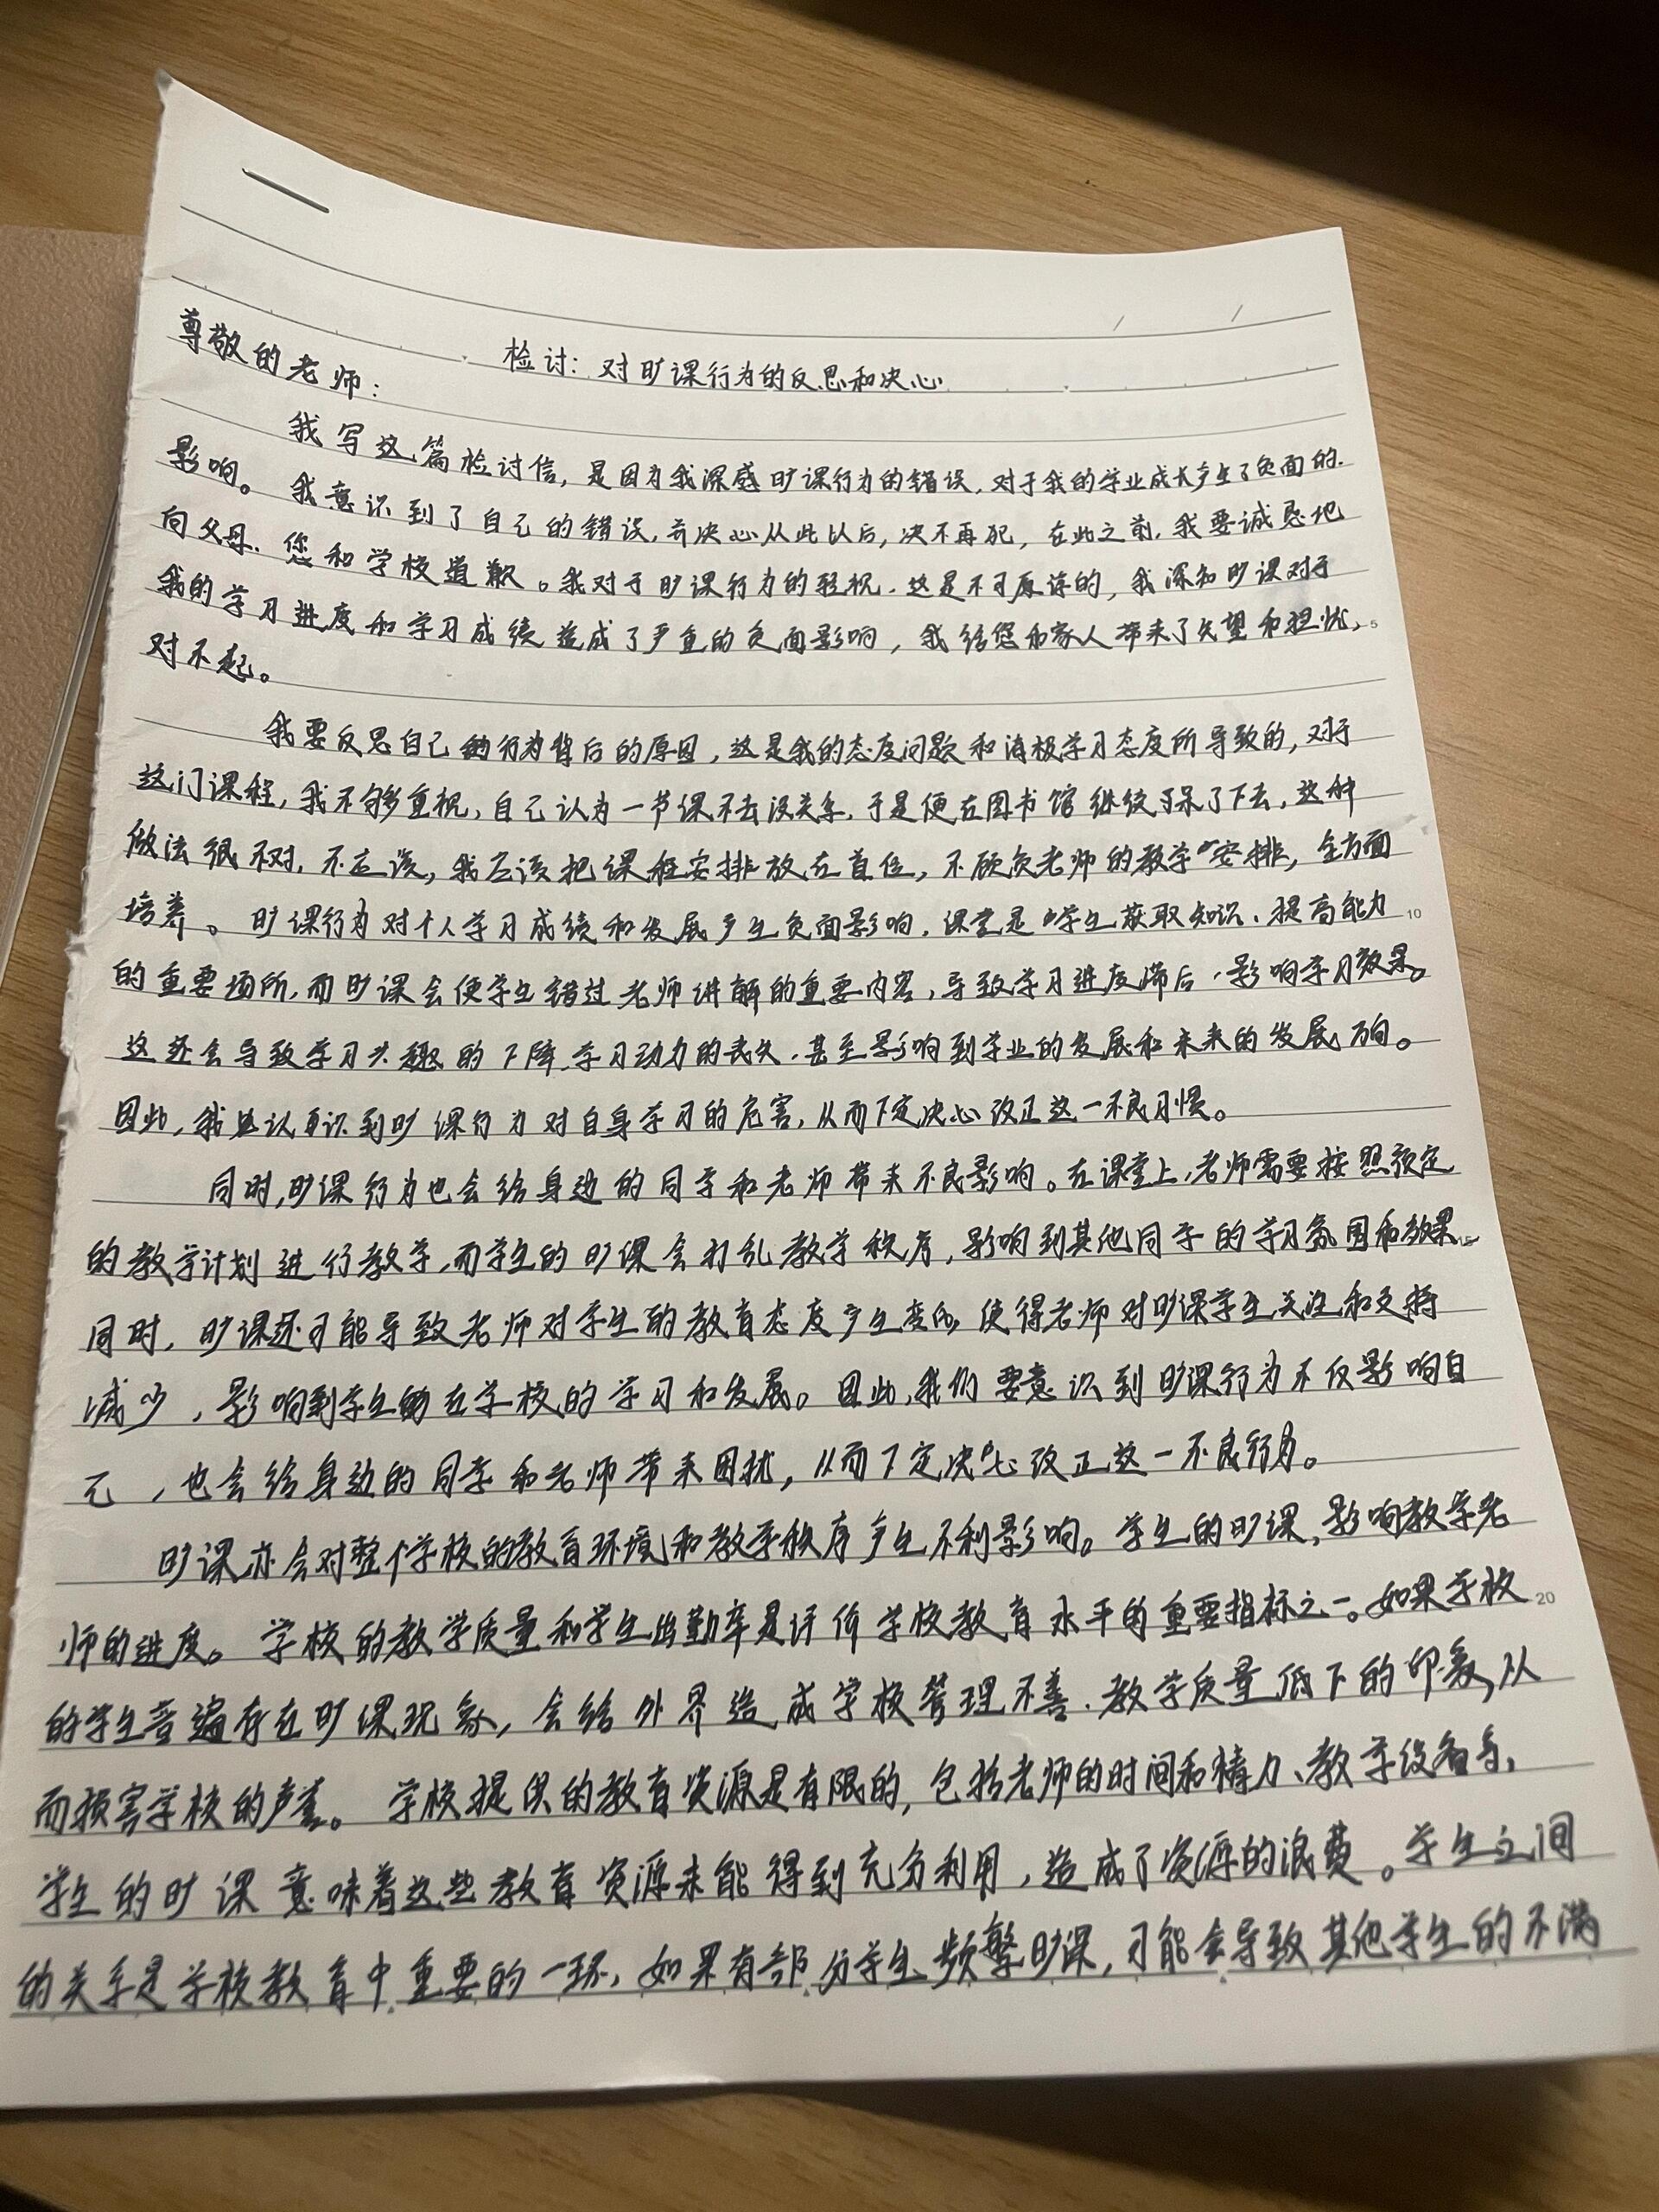 检讨：对旷课行为的反思和决心
尊敬的老师：
我写这篇检讨信，是因为我深感旷课行为的错误，对于我的学业成长产生了负面的
影响。我意识到了自己的错误，并决心从此以后，决不再犯，在此之前，我要诚恳地
向父母、您和学校道歉。我对于旷课行为的轻视，这是不可原谅的，我深知旷课对于
我的学习进度和学习成绩造成了严重的负面影响，我给您和家人带来了失望和担忧，
对不起。
我要反思自己的行为背后的原因，这是我的态度问题和消极学习态度所导致的，对于
这门课程，我不够重视，自己认为一节课不去没关系，于是便在图书馆继续呆了下去，这种
做法很不对，不应该，我应该把课程安排放在首位，不顾负老师的教学安排，全方面
培养。旷课行为对个人学习成绩和发展产生负面影响，课堂是学生获取知识、提高能力
的重要场所，而旷课会使学生错过老师讲解的重要内容，导致学习进度滞后，影响学习效果。
这还会导致学习兴趣的下降，学习动力的丧失，甚至影响到学业的发展和未来的发展方向。
因此，我认识到旷课行为对自身学习的危害，从而下定决心改正这一不良习惯。
同时，旷课行为也会给身边的同学和老师带来不良影响。在课堂上，老师需要按照预定
的教学计划进行教学，而学生的旷课会打乱教学秩序，影响到其他同学的学习氛围和效果。
同时，旷课还可能导致老师对学生的教育态度产生变化，使得老师对旷课学生关注和支持
减少，影响到学生在学校的学习和发展。因此，我们要意识到旷课行为不仅影响自
己，也会给身边的同学和老师带来困扰，从而下定决心改正这一不良行为。
旷课亦会对整个学校的教育环境和教学秩序产生不利影响。学生的旷课，影响教学老
师的进度。学校的教学质量和学生出勤率是评价学校教育水平的重要指标之一。如果学校
的学生普遍存在旷课现象，会给外界造成学校管理不善、教学质量低下的印象，从
而损害学校的声誉。学校提供的教育资源是有限的，包括老师的时间和精力、教学设备等，
学生的旷课意味着这些教育资源未能得到充分利用，造成了资源的浪费。学生之间
的关系是学校教育中重要的一环，如果有部分学生频繁旷课，可能会导致其他学生的不满
5
10
15
20